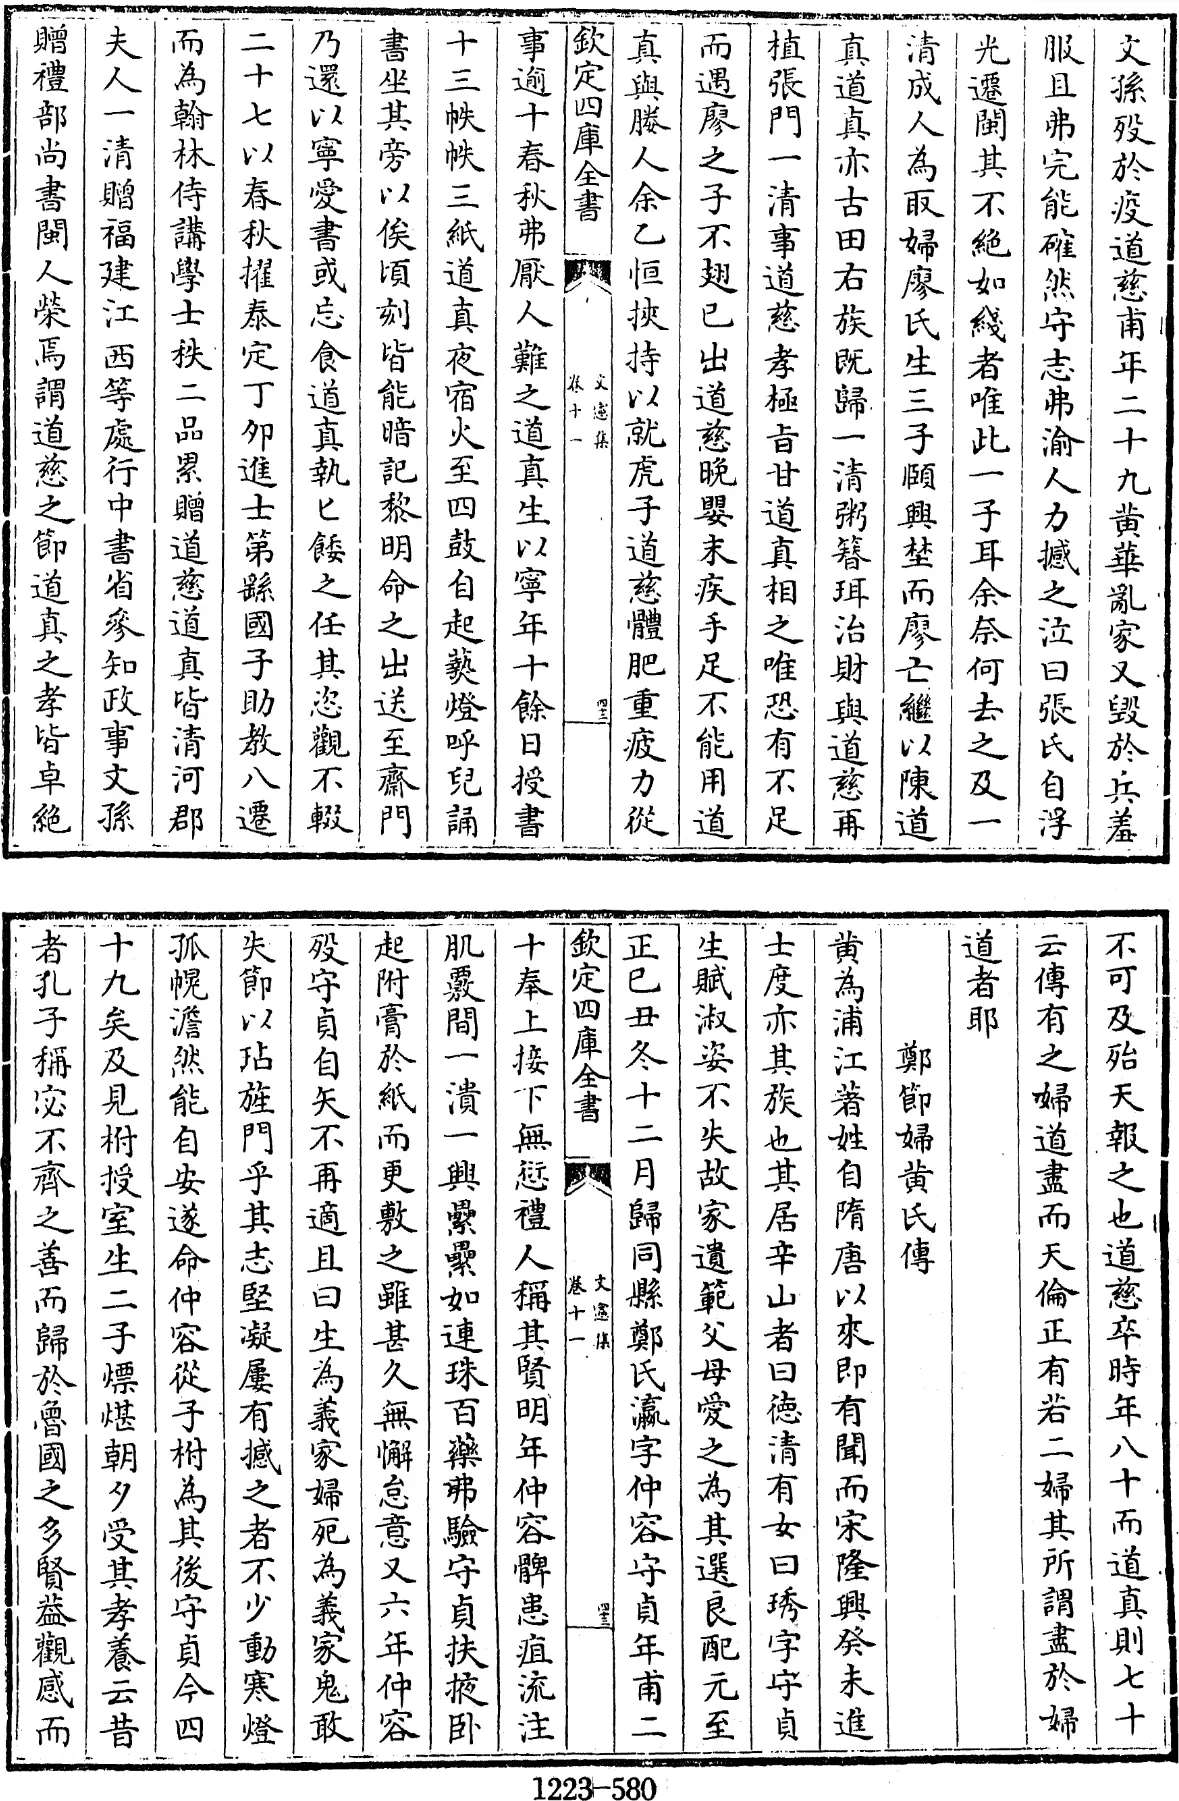 文孫歿於疫道慈甫年二十九黄華亂家又毀於兵羞
服且弗完能確然守志弗渝人力撼之泣曰張氏自浮
光遷閩其不絶如綫者唯此一子耳余奈何去之及一
清成人為取婦廖氏生三子頤興埜而廖亡繼以陳道
真道真亦古田右族既歸一清粥簪珥治財與道慈再
植張門一清事道慈孝極旨甘道真相之唯恐有不足
而遇廖之子不翅已出道慈晩嬰末疾手足不能用道
真與媵人余乙恒挾持以就虎子道慈體肥重疲力從
欽定四庫全書
文憲集
卷十一
四十二
事逾十春秋弗厭人難之道真生以寧年十餘日授書
十三帙帙三紙道真夜宿火至四鼓自起爇燈呼兒誦
書坐其旁以俟頃刻皆能暗記黎明命之出送至齋門
乃還以寧愛書或忘食道真執匕餧之任其恣觀不輟
二十七以春秋擢泰定丁夘進士第繇國子助教八遷
而為翰林侍講學士秩二品累贈道慈道真皆清河郡
夫人一清贈福建江西等處行中書省參知政事文孫
贈禮部尚書閩人榮焉謂道慈之節道真之孝皆卓絶
不可及殆天報之也道慈卒時年八十而道真則七十
云傳有之婦道盡而天倫正有若二婦其所謂盡於婦
道者耶
鄭節婦黄氏傳
黄為浦江著姓自隋唐以來即有聞而宋隆興癸未進
士度亦其族也其居辛山者曰德清有女曰琇字守貞
生賦淑姿不失故家遺範父母愛之為其選良配元至
正已丑冬十二月歸同縣鄭氏瀛字仲容守貞年甫二
欽定四庫全書
文憲集
卷十一
四十三
十奉上接下無愆禮人稱其賢明年仲容髀患疽流注
肌覈間一潰一興纍纍如連珠百藥弗驗守貞扶掖卧
起附膏於紙而更敷之雖甚久無懈怠意又六年仲容
歿守貞自矢不再適且曰生為義家婦死為義家鬼敢
失節以玷旌門乎其志堅凝屢有撼之者不少動寒燈
孤幌澹然能自安遂命仲容從子柎為其後守貞今四
十九矣及見柎授室生二子熛煁朝夕受其孝養云昔
者孔子稱宓不齊之善而歸於魯國之多賢益觀感而
1223-580